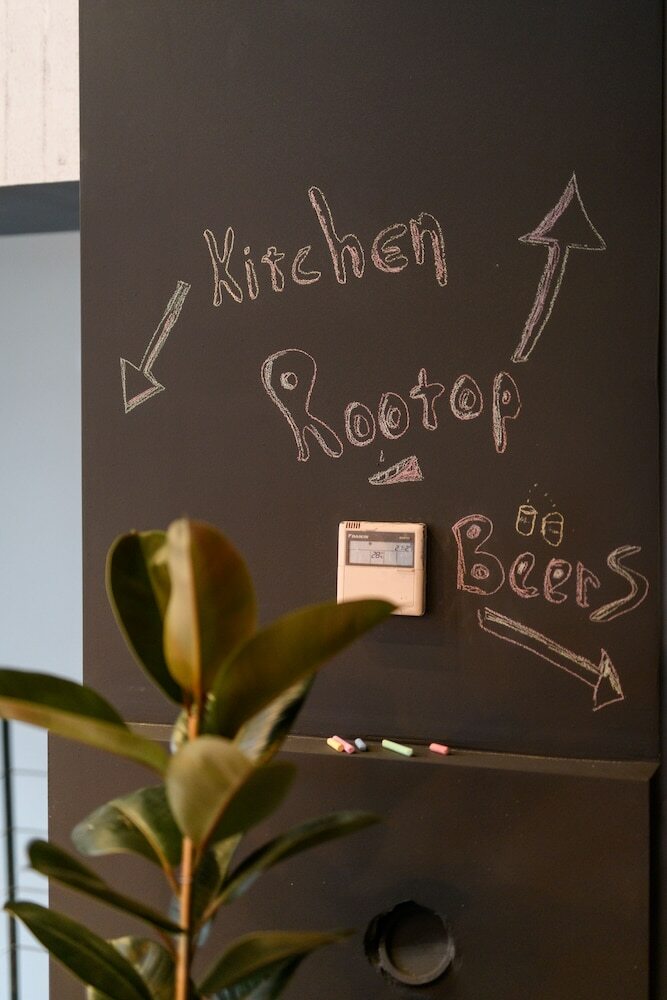 Kitchen
Rootop
Beers
DAIKIN